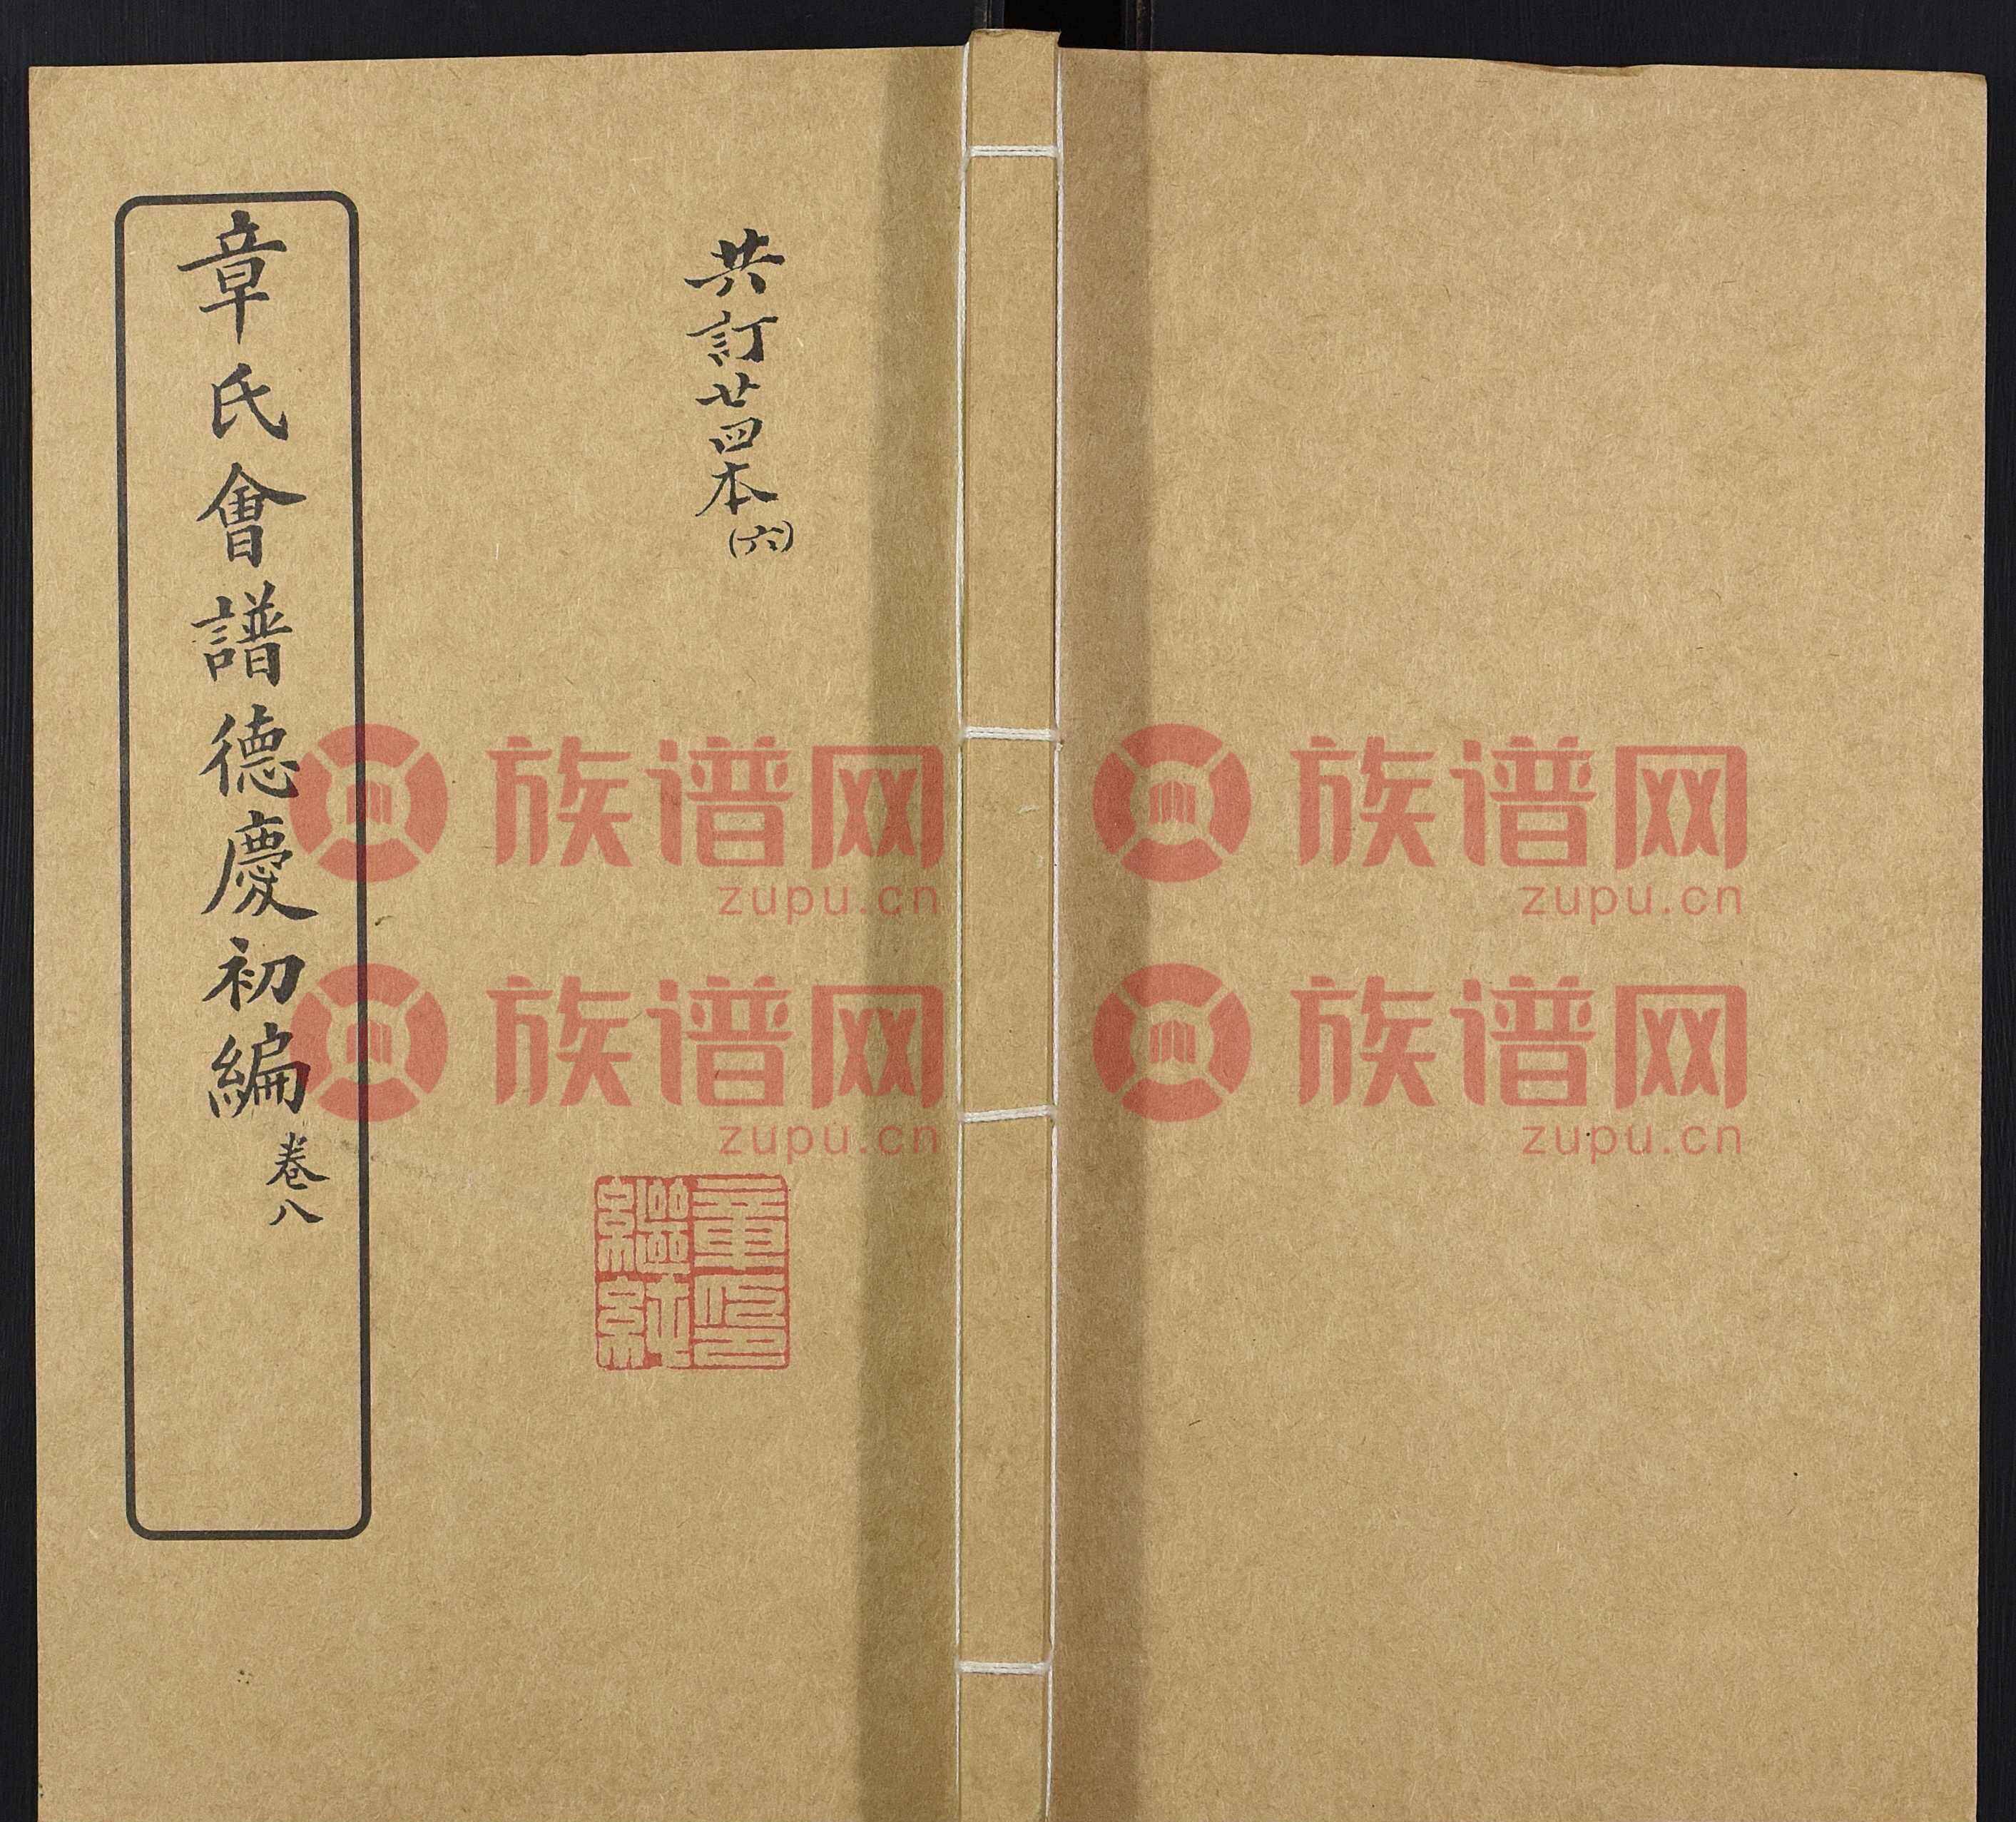 共訂廿四本(六)
章氏會譜德慶初編 卷八
族谱网
zupu.cn
族谱网
zupu.cn
族谱网
zupu.cn
族谱网
zupu.cn